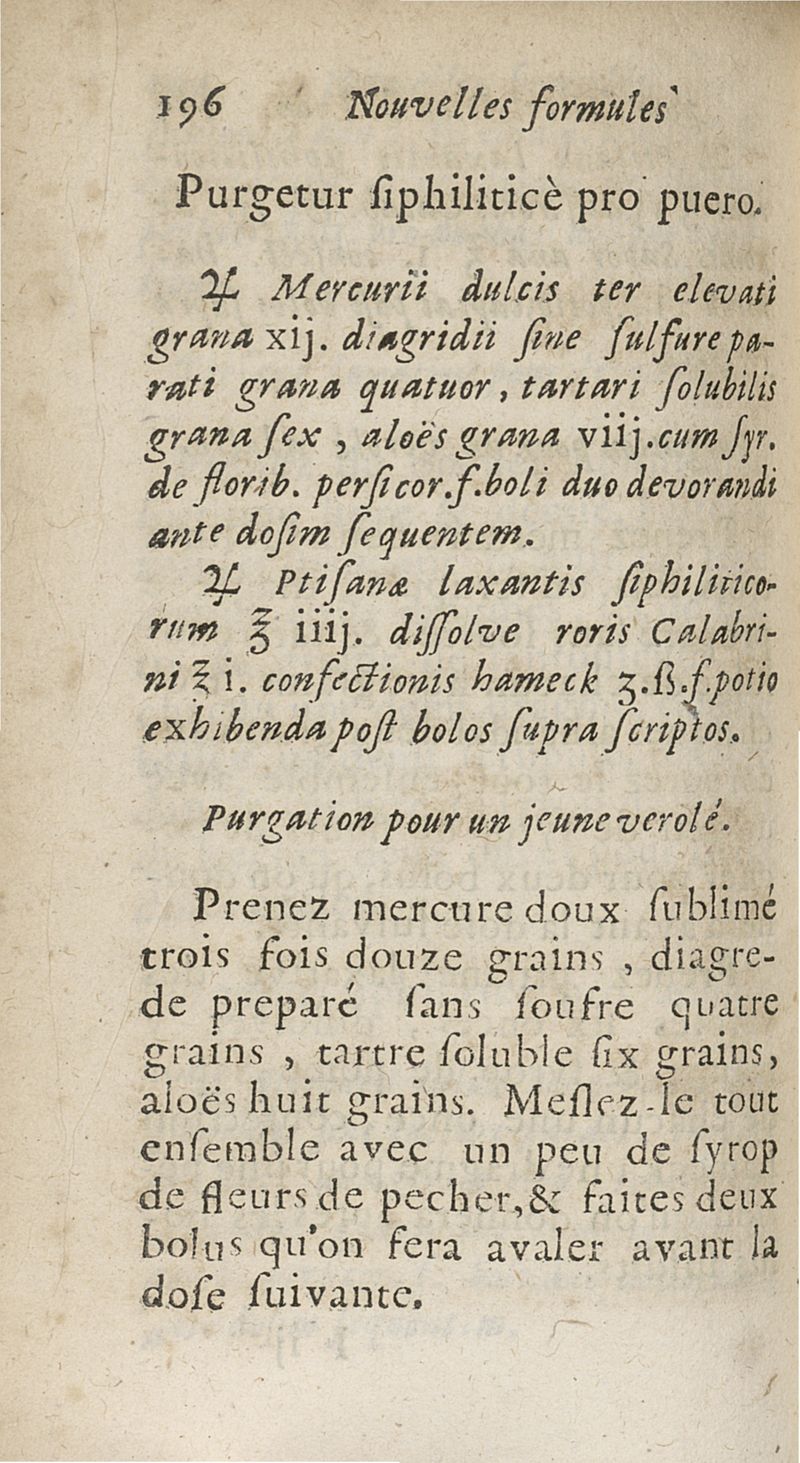 196 Nouvelles formules
Purgetur ſiphiliticè pro puero.
♃ Mercurii dulcis ter elevati
grana xij. diagridii ſine ſulfure pa-
rati grana quatuor, tartari ſolubilis
grana ſex, aloës grana viij. cum ſyr.
de florib. perſicor. f. boli duo devorandi
ante doſim ſequentem.
♃ Ptiſanæ laxantis ſiphilitico-
rum ℥ iiij. diſſolve roris Calabri-
ni ℥ i. confectionis hameck ʒ.ß. f. potio
exhibenda poſt bolos ſupra ſcriptos.
Purgation pour un jeune verolé.
Prenez mercure doux ſublimé
trois fois douze grains, diagre-
de preparé ſans ſoufre quatre
grains, tartre ſoluble ſix grains,
aloës huit grains. Meſlez-le tout
enſemble avec un peu de ſyrop
de fleurs de pecher, & faites deux
bolus qu'on fera avaler avant la
doſe ſuivante.